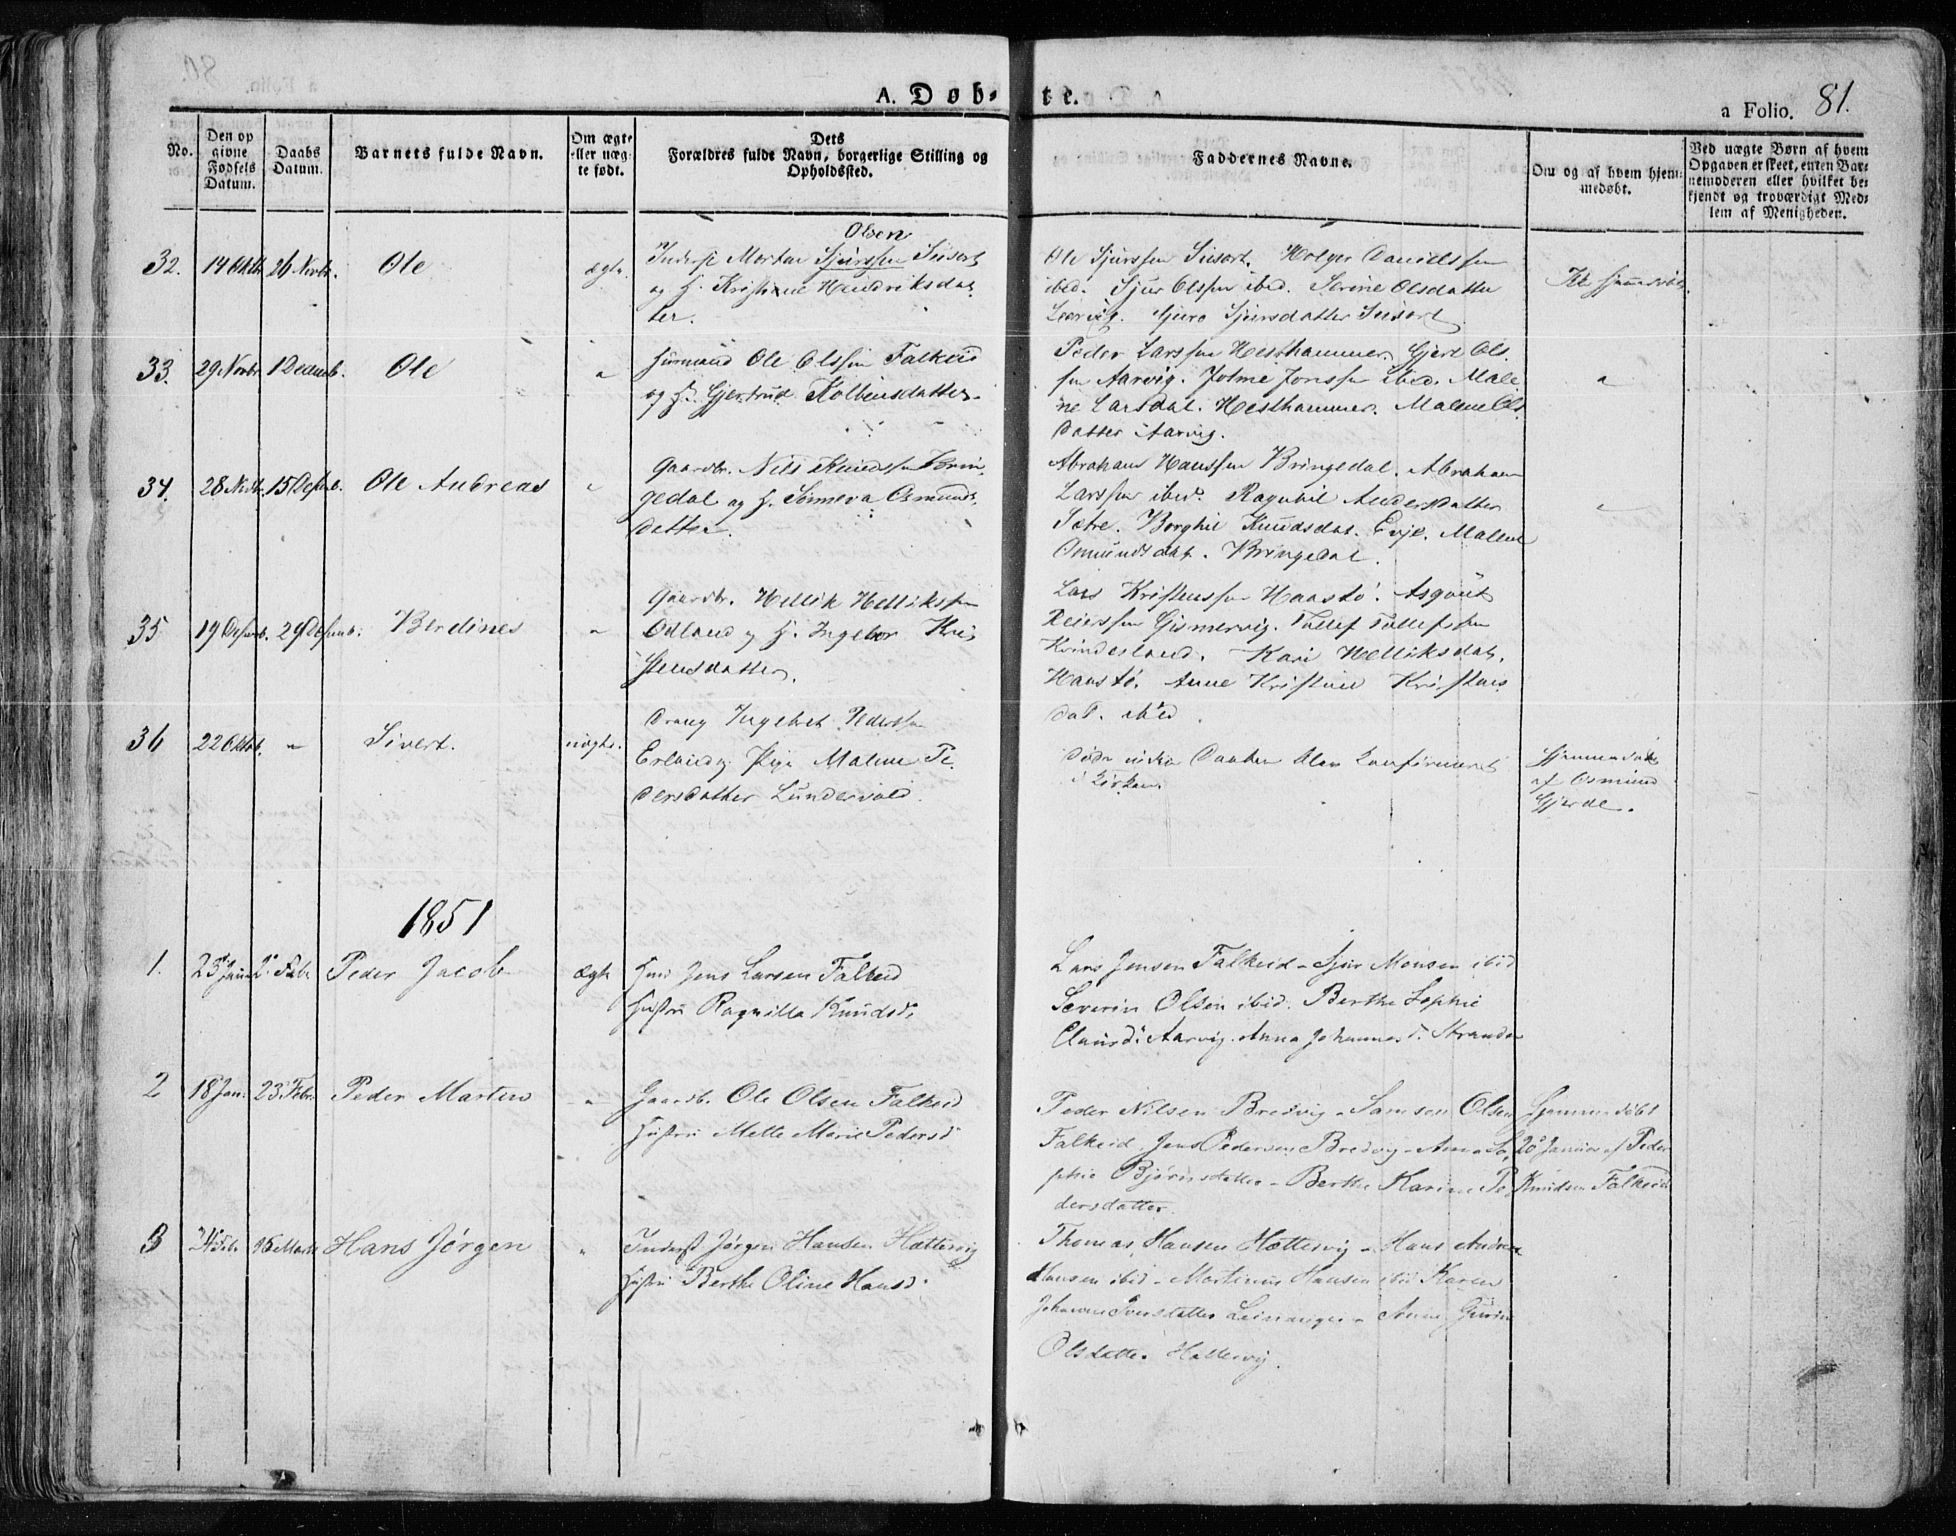 A. Døb-te.
a Folio. 81.
No.
Den op
givne
Fødsels
Datum.
Daabs
Datum.
Barnets fulde Navn.
Om ægte
eller uæg-
te født.
Dets
Forældres fulde Navn, borgerlige Stilling og
Opholdssted.
Faddernes Navne.
Om og af hvem hjem-
medøbt.
Ved uægte Børn af hvem
Opgaven er skeet, enten Bar-
nemoderen eller hvilket be-
kjendt og troværdigt Med-
lem af Menigheden.
32. 14 Oktb. 26 Novbr. Ole ægte.
Olsen
Inderst Morten Sjurssen
og H. Kristine Hendriksdat
ter.
Ole Sjurssen Holger Danielssen
ibid. Sjur Olssen ibid. Serine Olsdatter
Sjursdatter
33. 29 Novbr. 1 Decemb. Ole "
Huusmand Ole Olssen Falkeid
og H. Gjertrud Kolbensdatter.
Peder Larssen Hesthammer. Gjert Ols
sen Aarvig. Jonssen ibid. Male
ne Larsdat. Hesthammer. Malene Ols
datter Aarvig.
"
34. 28 Novbr. 15 Desemb. Ole Andreas "
Gaardbr. Nils Knudssen Brin
gedal og H. Osmunds
datter.
Abraham Hanssen Bringedal. Abraham
Larssen ibid. Ragnhil Andersdatter
Sætre. Borghil Knudsdat. Eeje. Malene
Osmundsdat. Bringedal.
"
35. 19 Desemb. 29 Desemb. Berdines "
Gaardbr. Hellik Hellikssen
Odland og H. Ingebor Kri
stensdatter.
Lars Kristenssen Haastø. Asgout
Reierssen Gismervig. Tollef Tollefssen
Kvindesland. Kari Helliksdat.
Haastø. Anne Kristine Kristens
dat. ibid.
36 22 Oktob. " Sivert. uægte.
Dreng Ingebret Pederssen
Erland og Pige Malene Pe
dersdatter Lundevold.
Døde inden Daaben blev konfirmeret
i Kirken.
Hjemmedøbt
af Osmund
Gjerde.
1851
1. 23 Janu 2. Feb. Peder Jacob ægte
Huus. Jens Larsen Falkeid
Hustru Ragnilla Knudsd.
Lars Jensen Falkeid - Sjur Monsen ibid
Severin Olsen ibid. Berthe Sophie
Clausd. Aarvig. Anna Johannesd. Stranden
2 18 Jan. 23 Febr. Peder Martin "
Gaardb. Ole Olsen Falkeid
Hustru Mette Marie Pedersd
Peder Nilsen Bredvig - Samson Olsen
Falkeid, Jens Pedersen Bredvig - Anna So
phie Bjørnsdatter - Berthe Karine Pe
dersdatter.
Hjemmedøbt
20 Januar af Peder
Knudsen Falkeid
3 24 Feb. 16 Marts Hans Jørgen "
Inderst Jørgen Hansen Hættervig
Hustru Berthe Oline Hansd.
Thomas Hansen Hættervig - Hans Andrea
Hansen ibid - Martinus Hansen ibid Karen
Johanne Iversdatter - Anne Gurine
Olsdatter Hættervig.